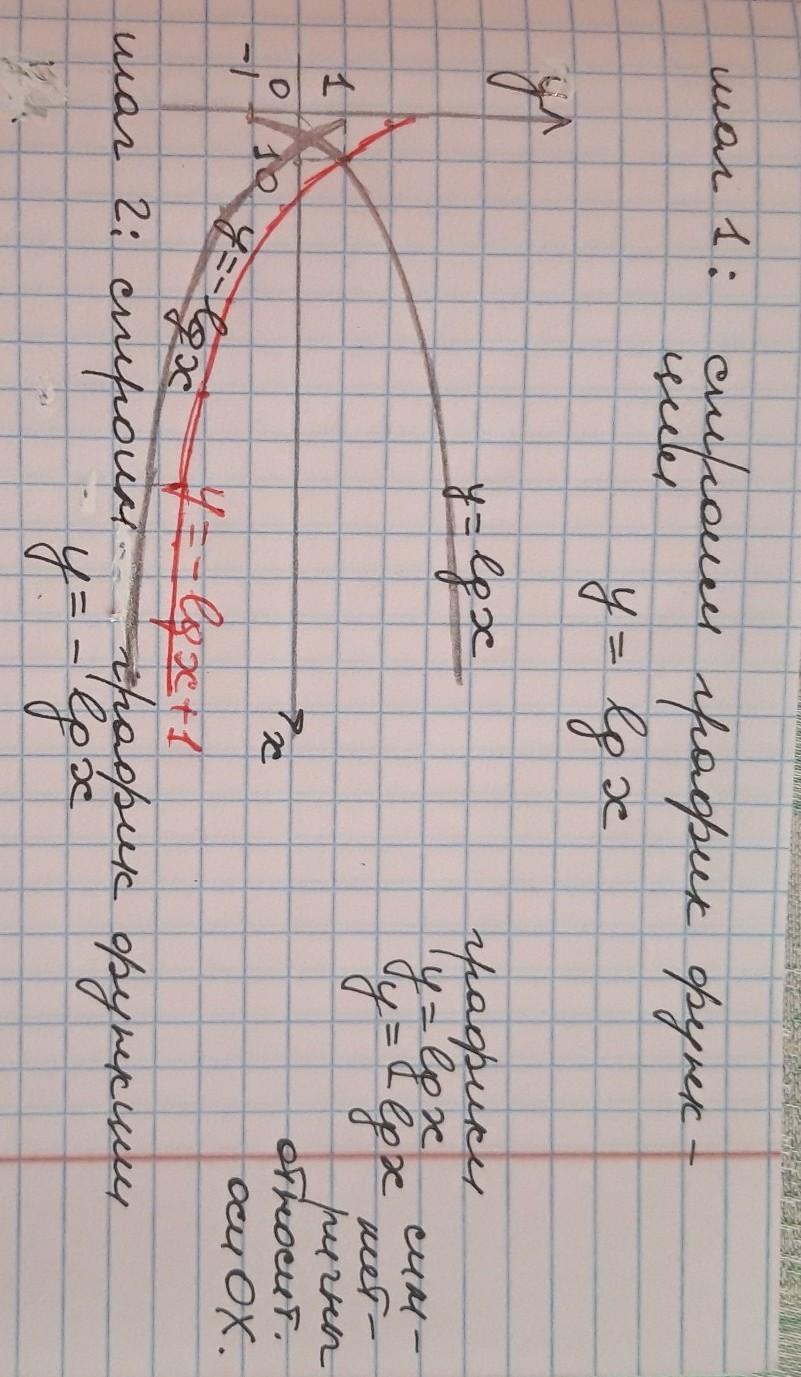 шаг 1: строим график функ-
ции
y = lg x
y
1
0
-1
10
x
y = lg x
y = - lg x
y = - lg x + 1
графики
y = lg x
y = - lg x
сим-
мет-
ричны
относит.
оси OX.
шаг 2: строим график функции
y = - lg x